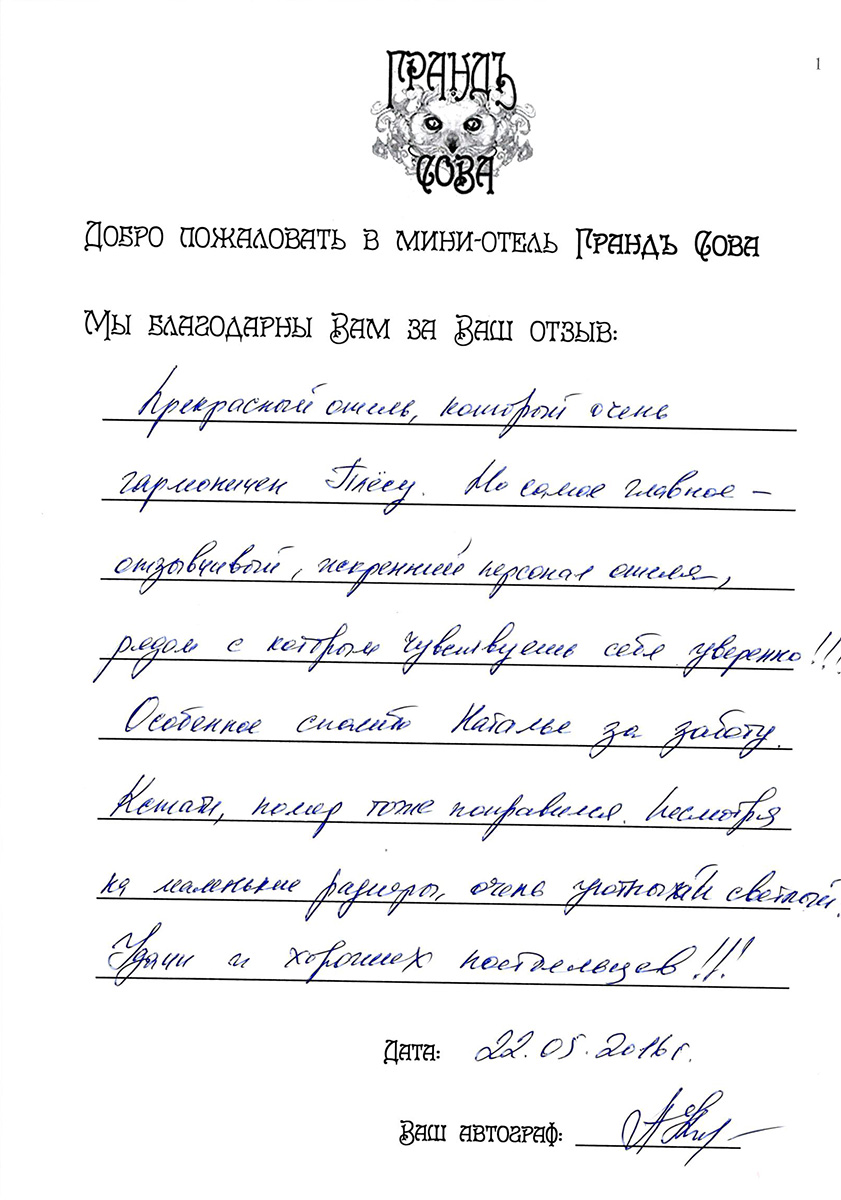 1
Грандъ
Сова
Добро пожаловать в мини-отель Грандъ Сова
Мы благодарны Вам за Ваш отзыв:
Прекрасный отель, который очень
гармоничен Плёсу. Но самое главное –
отзывчивый, искренний персонал отеля,
рядом с которым чувствуешь себя уверенно!!!
Особенное спасибо Наталье за заботу.
Кстати, номер тоже понравился. Несмотря
на маленькие размеры, очень уютный и светлый.
Удачи и хороших постояльцев!!!
Дата: 22.05.2016 г.
Ваш автограф: